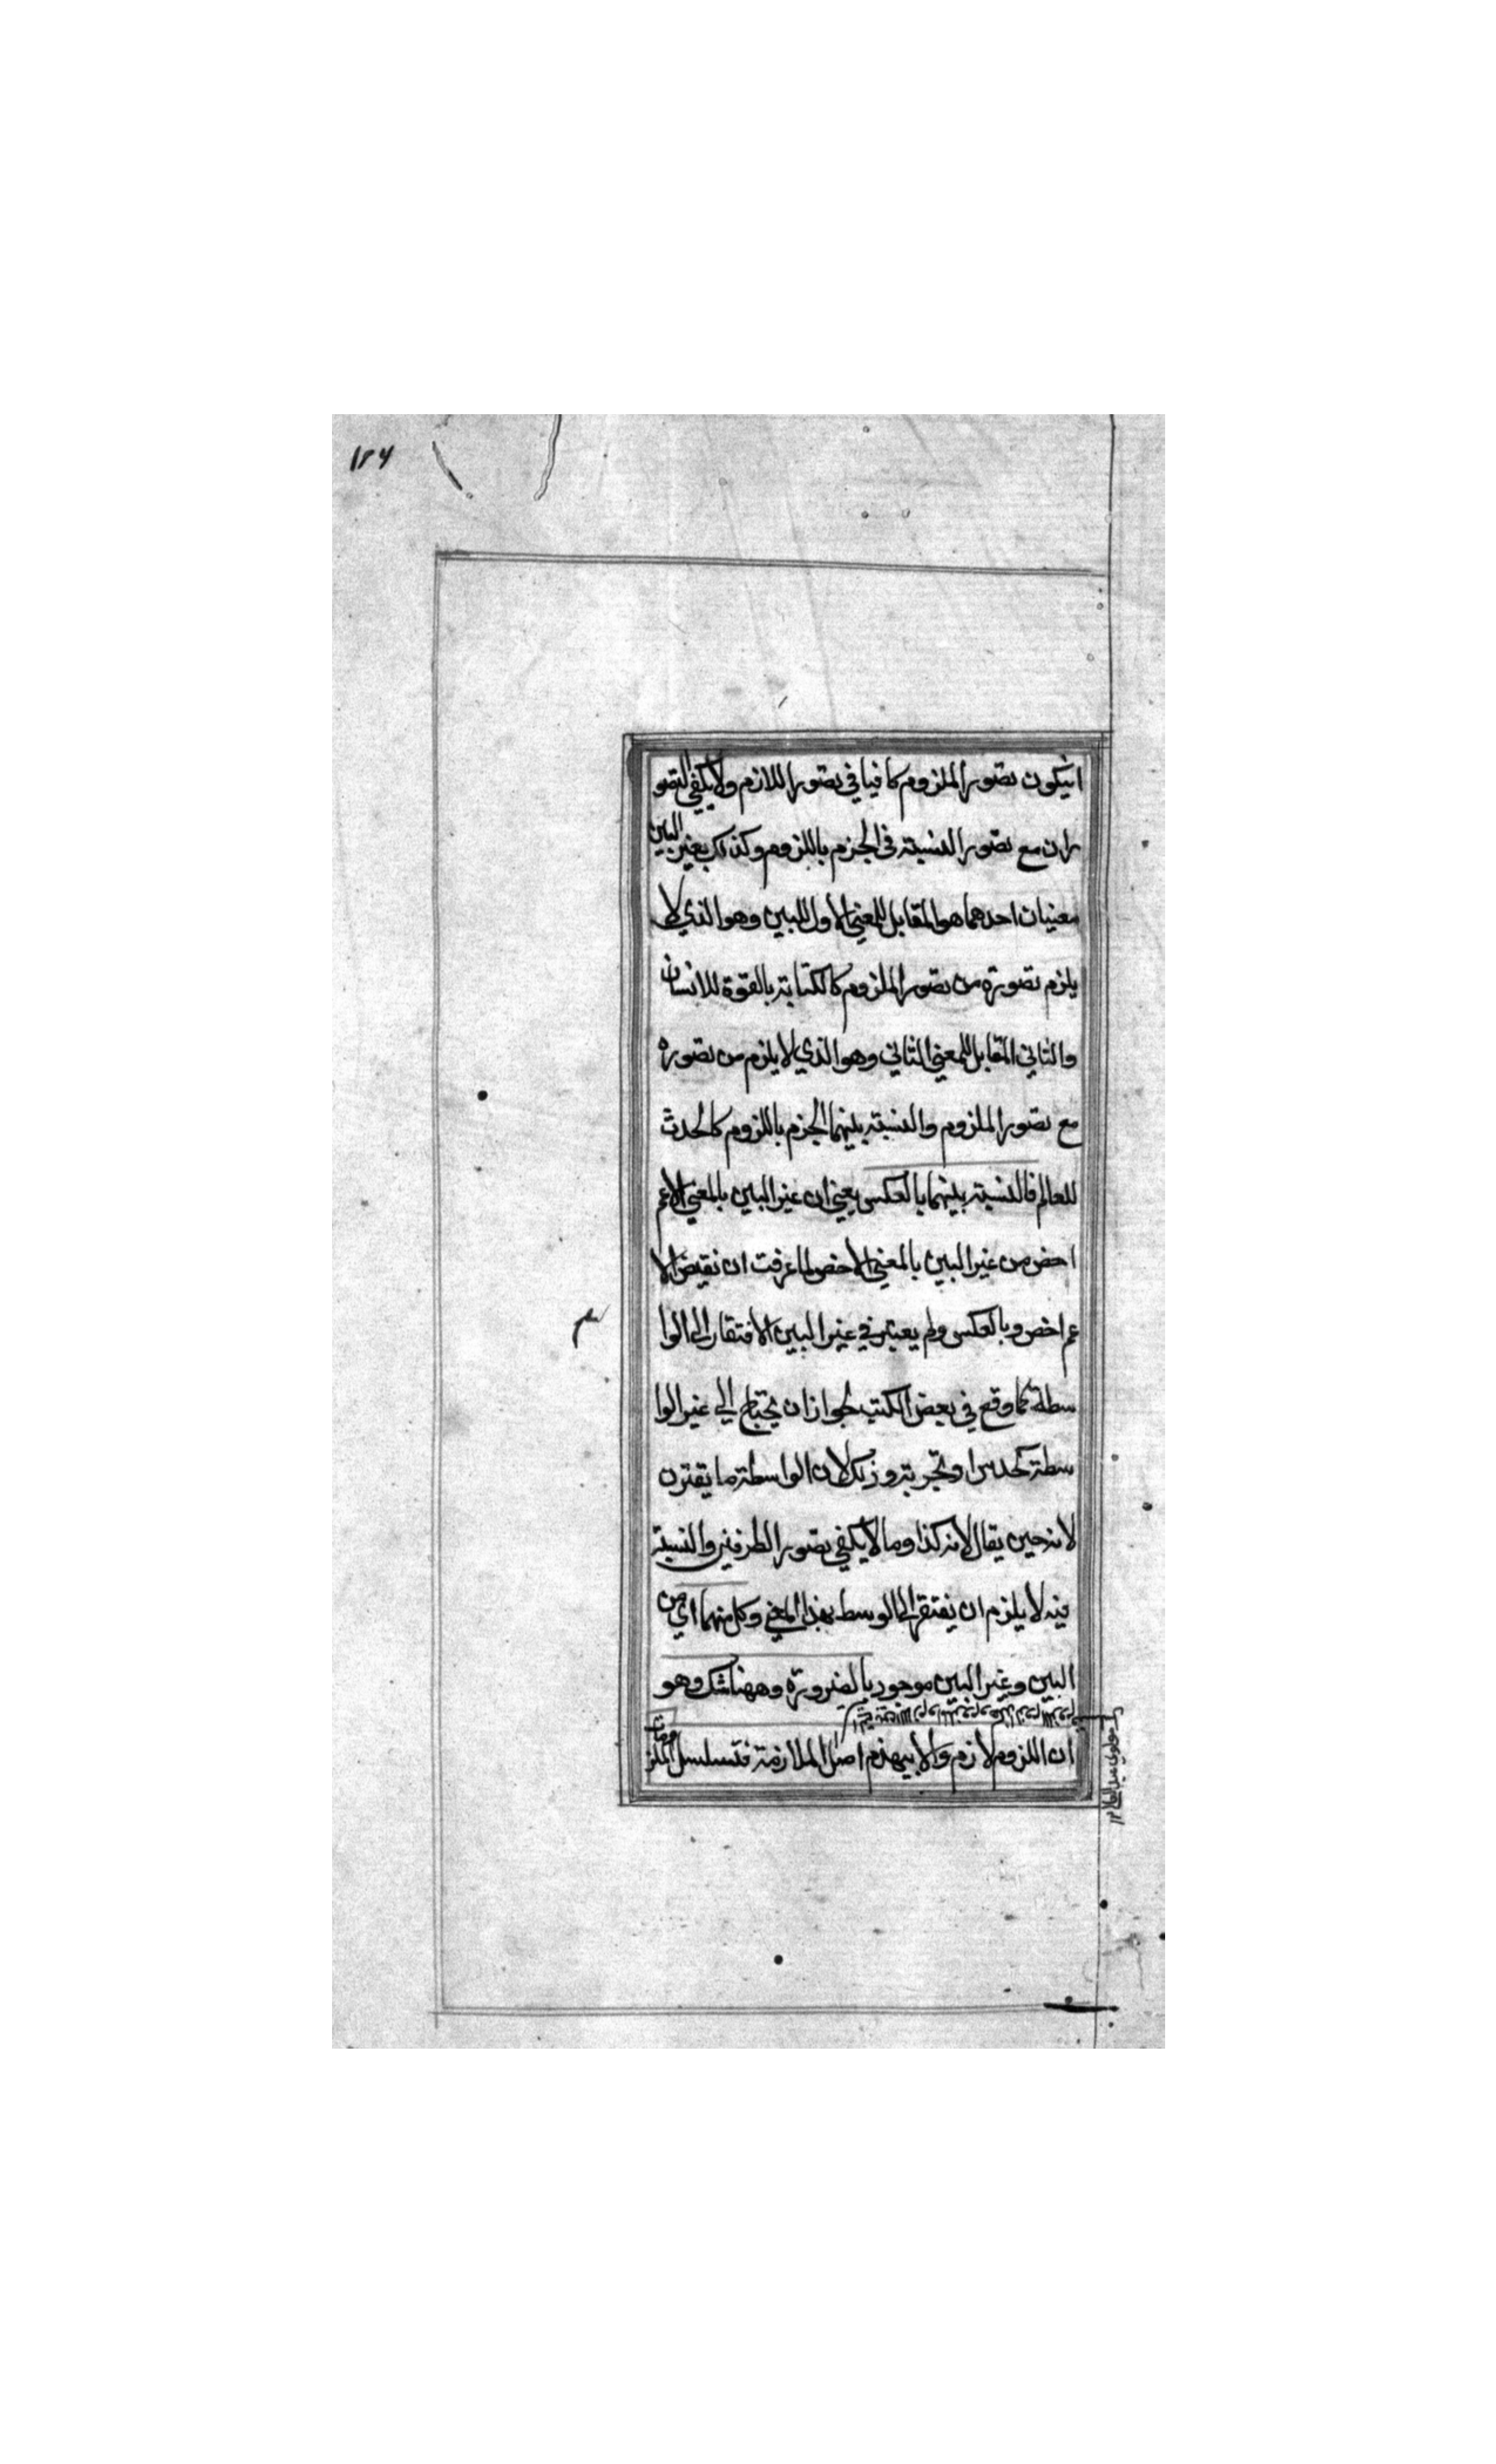 ۱۲۶
انيكون تصور الملزوم كافيا في تصور اللازم ولا يكفي التصو
ران مع تصور النسبة في الجزم باللزوم وكذلك بغير البين
معنيان احدهما هو المقابل للمعني الاول للبين وهو الذي لا
يلزم تصوره من تصور الملزوم كالكتابة بالقوة للانسان
والثاني المقابل للمعني الثاني وهو الذي لا يلزم من تصوره
مع تصور الملزوم والنسبة بينهما الجزم باللزوم كالحدث
للعالم فالنسبة بينهما بالعكس يعني ان غير البين بالمعني الاعم
اخص من غير البين بالمعني الاخص لما عرفت ان نقيض الا
عم اخص وبالعكس ولم يعتبر في غير البين الافتقار الي الوا
سطة كما وقع في بعض الكتب لجواز ان يحتاج الي غير الوا
سطة كحدس او تجربة وذلك لان الواسطة ما يقترن
لانه حين يقال لانه كذا وما لا يكفي تصور الطرفين والنسبة
فيه لا يلزم ان يفتقر الي الوسط بهذا المعني وكل منهما اي من
البين وغير البين موجود بالضرورة وههنا شك وهو
ان اللزوم لازم والا ينهدم اصل الملازمة فتسلسل اللزومات